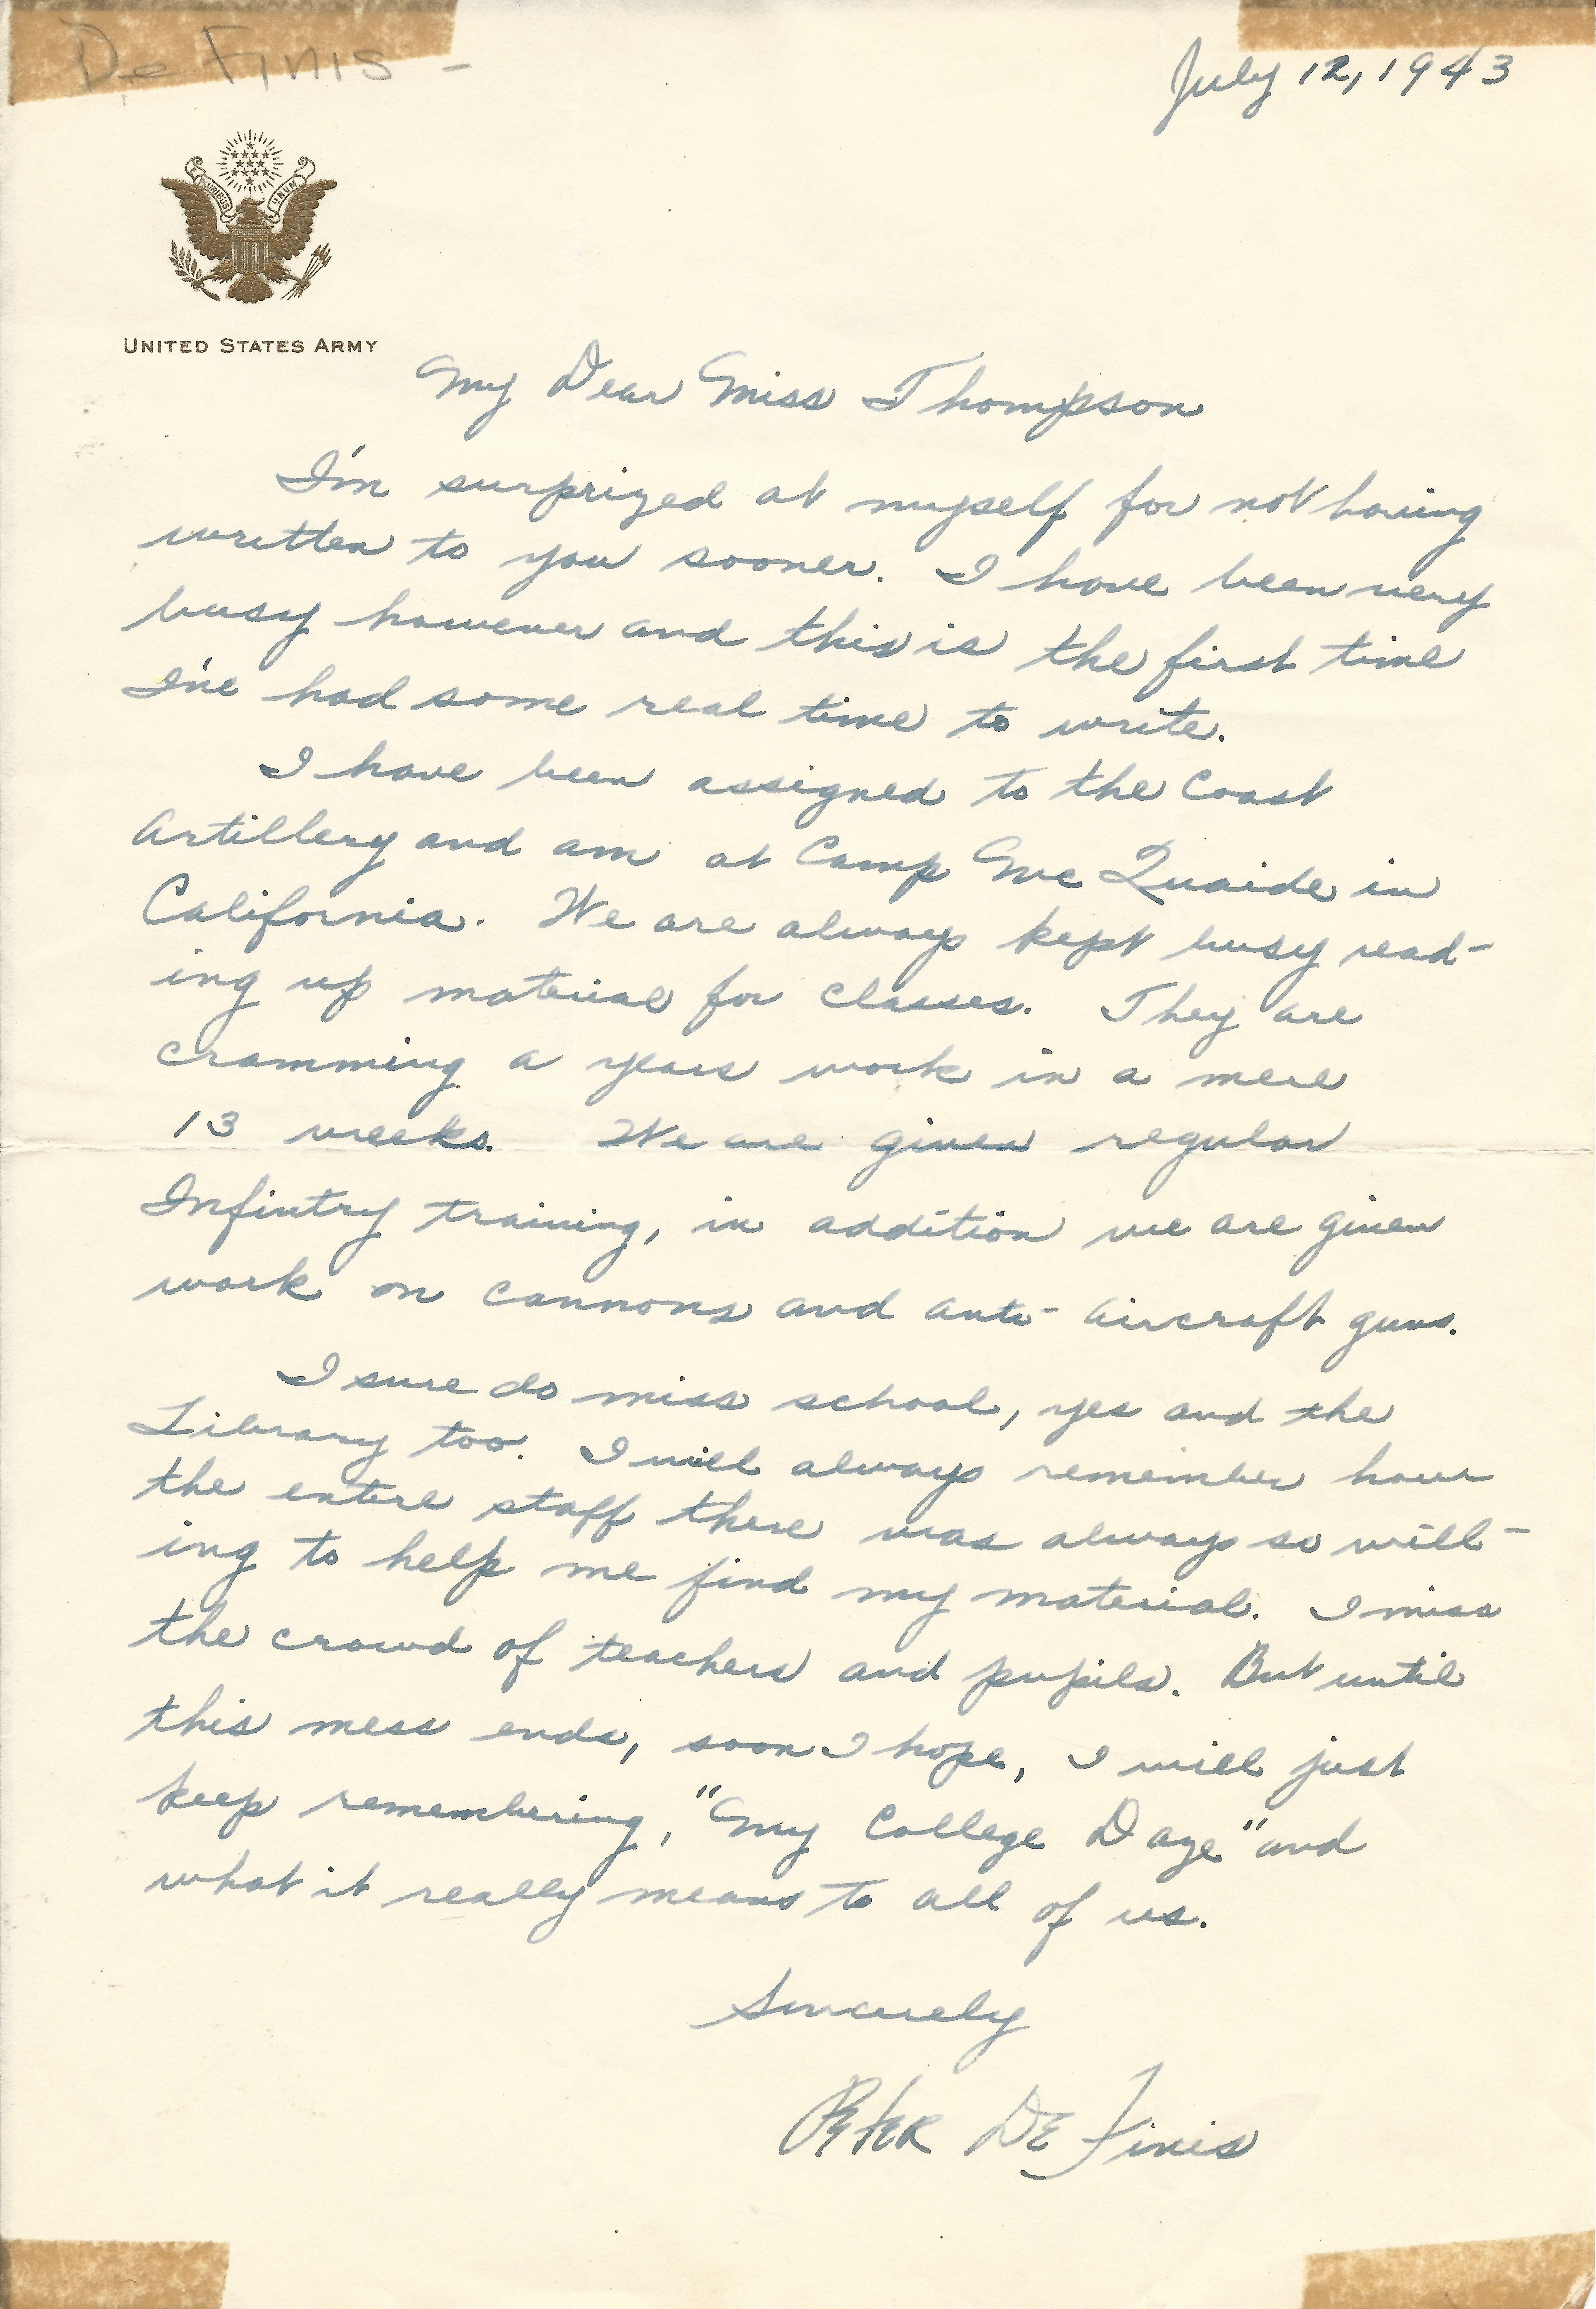 De Finis -
July 12, 1943
E PLURIBUS UNUM
UNITED STATES ARMY
My Dear Miss Thompson
I'm surprized at myself for not having
written to you sooner. I have been very
busy however and this is the first time
I've had some real time to write.
I have been assigned to the Coast
Artillery and am at Camp Mc Quaide in
California. We are always kept busy read-
ing up material for classes. They are
cramming a years work in a mere
13 weeks. We are given regular
Infintry training, in addition we are given
work on cannons and anti-aircraft guns.
I sure do miss school, yes and the
Library too. I will always remember how
the entire staff there was always so will-
ing to help me find my material. I miss
the crowd of teachers and pupils. But until
this mess ends, soon I hope, I will just
keep remembering, "My College Daze" and
what it really means to all of us.
Sincerely
Peter De Finis